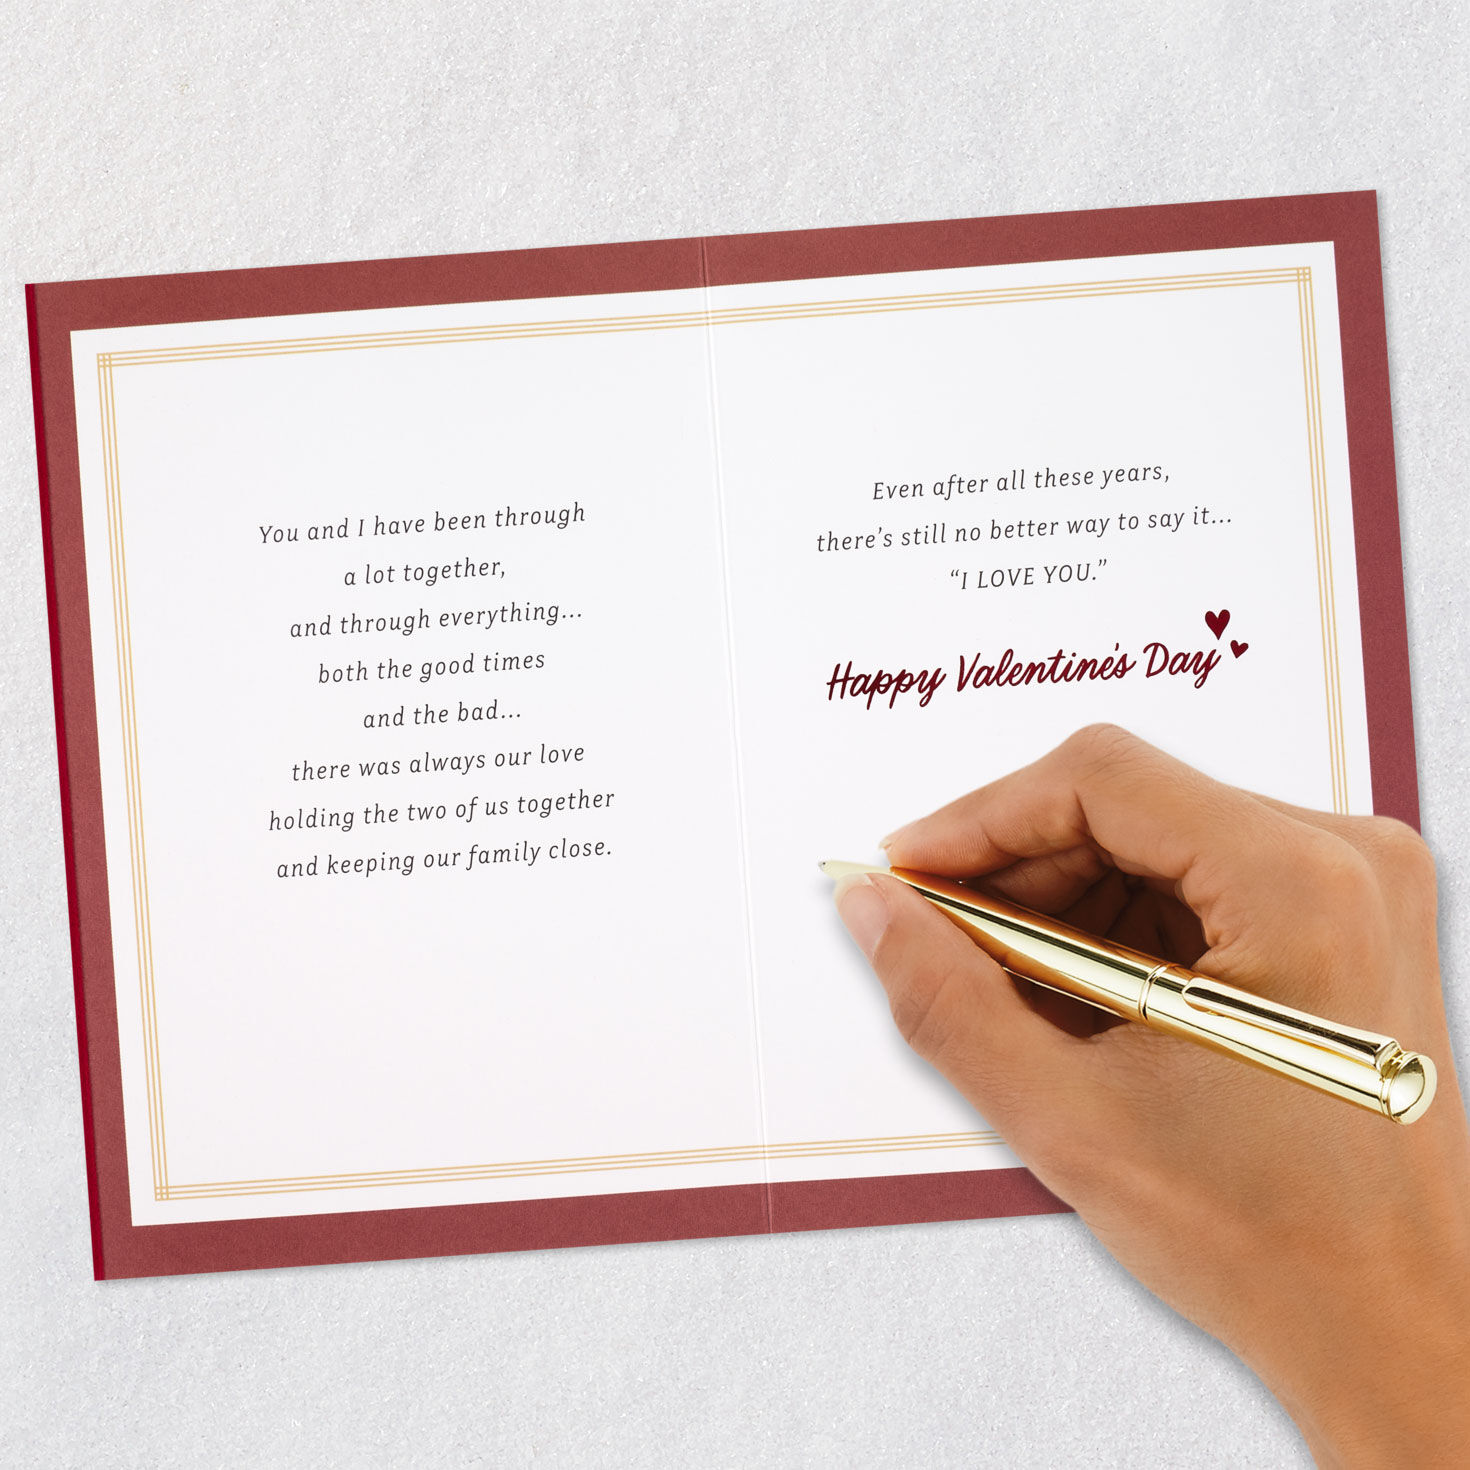 You and I have been through
a lot together,
and through everything...
both the good times
and the bad...
there was always our love
holding the two of us together
and keeping our family close.
Even after all these years,
there's still no better way to say it...
“I LOVE YOU.”
Happy Valentine's Day